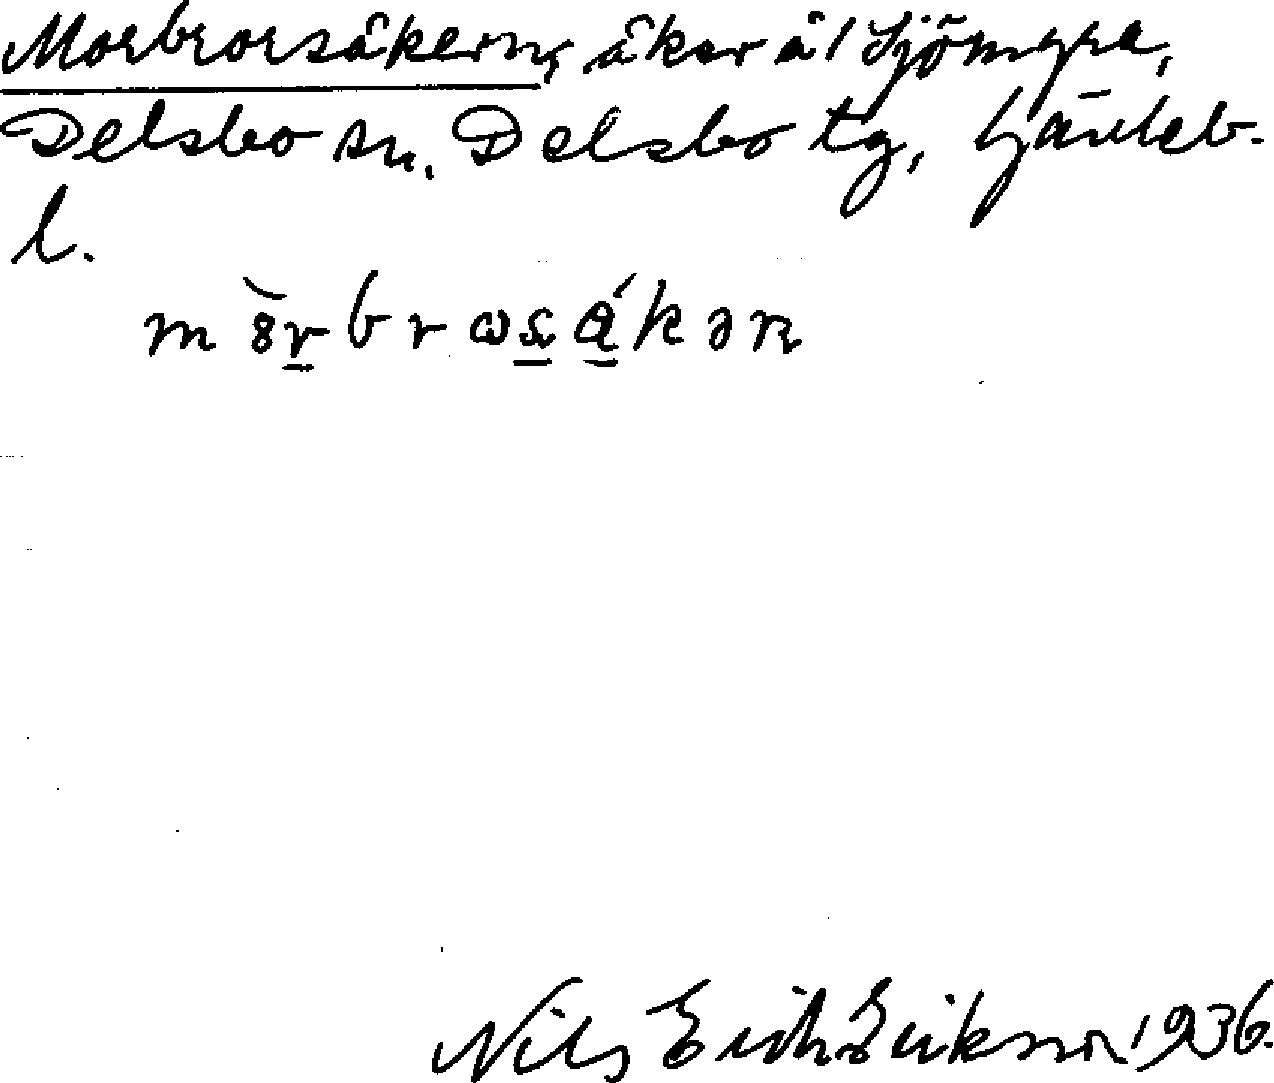 Morbrorsåkern, åker å Sjömyra,
Delsbo sn. Delsbo tg, Gävleb-
l.
Nils Erik Eriksson 1936.